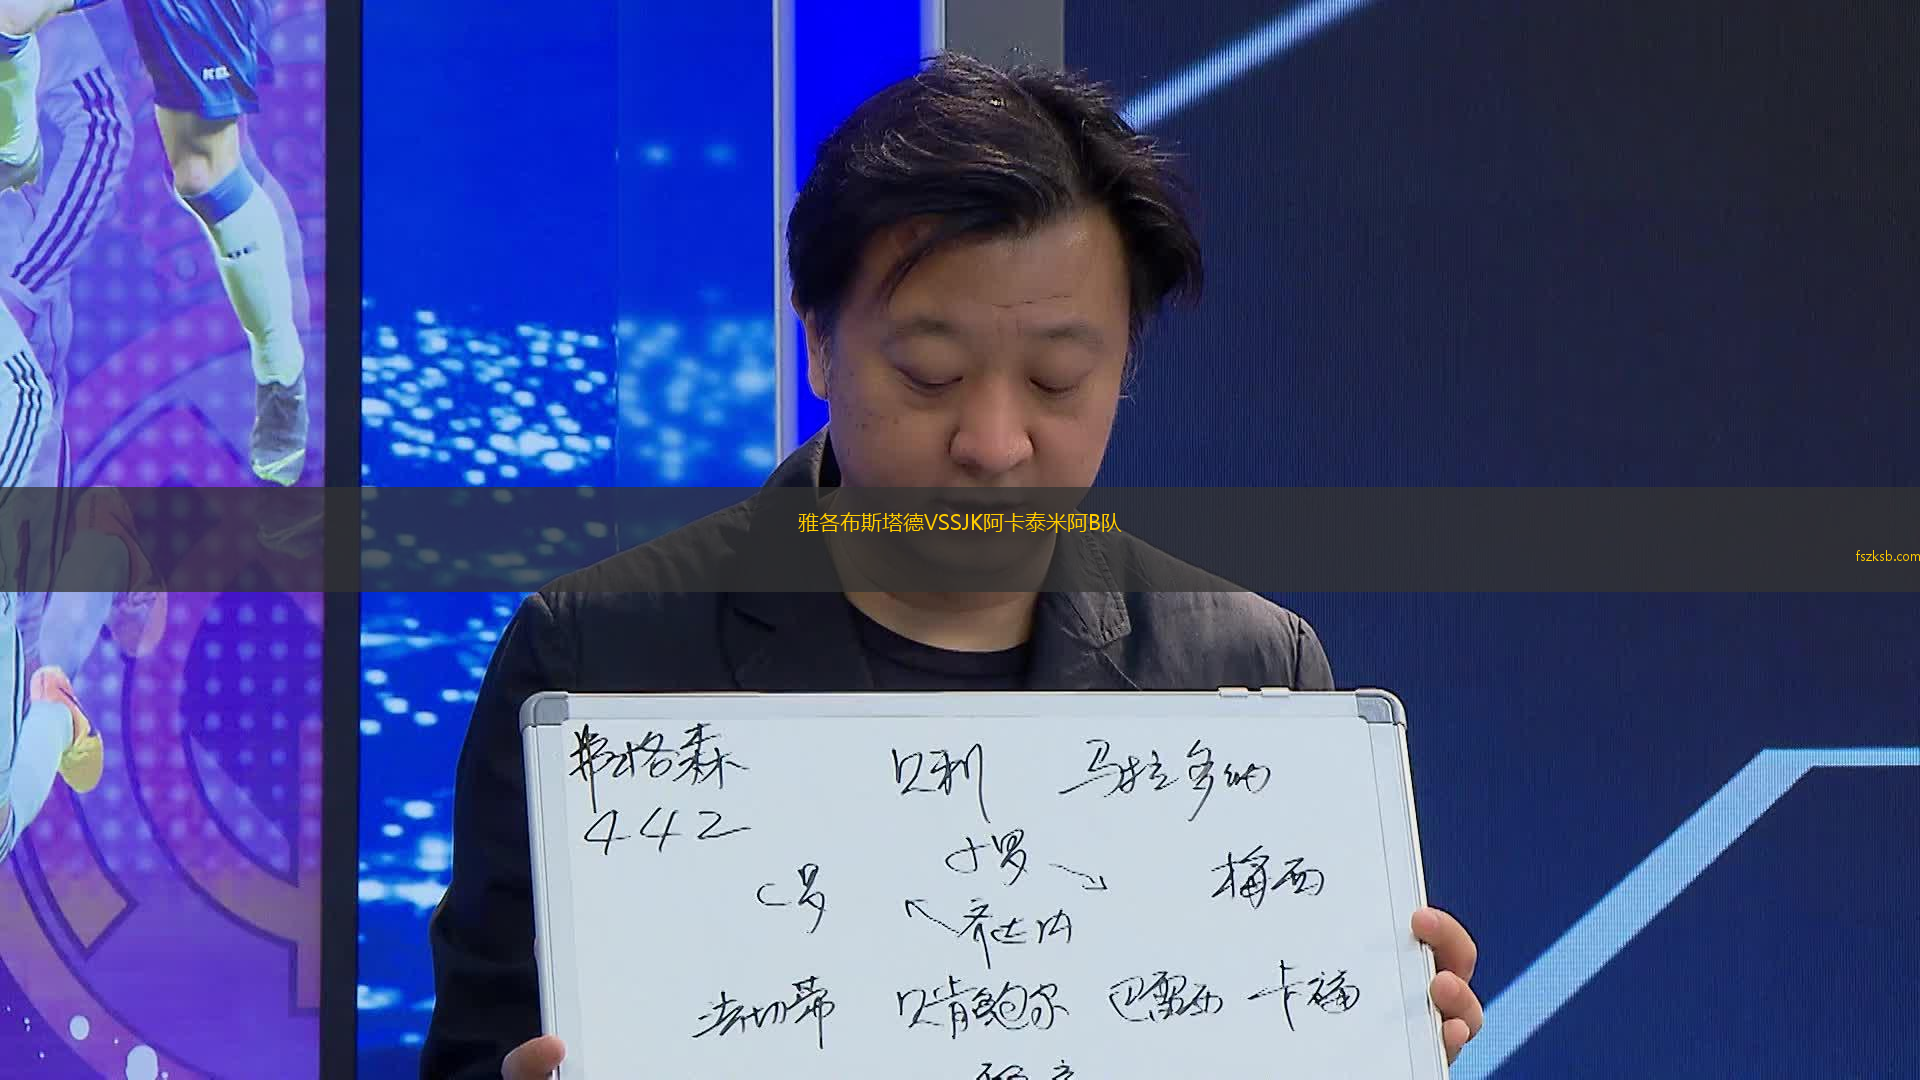 雅各布斯塔德VSSJK阿卡泰米阿B队
fszksb.com
弗格森 贝利 马拉多纳
442
小罗
C罗 梅西
齐达内
法切蒂 贝肯鲍尔 巴雷西 卡福